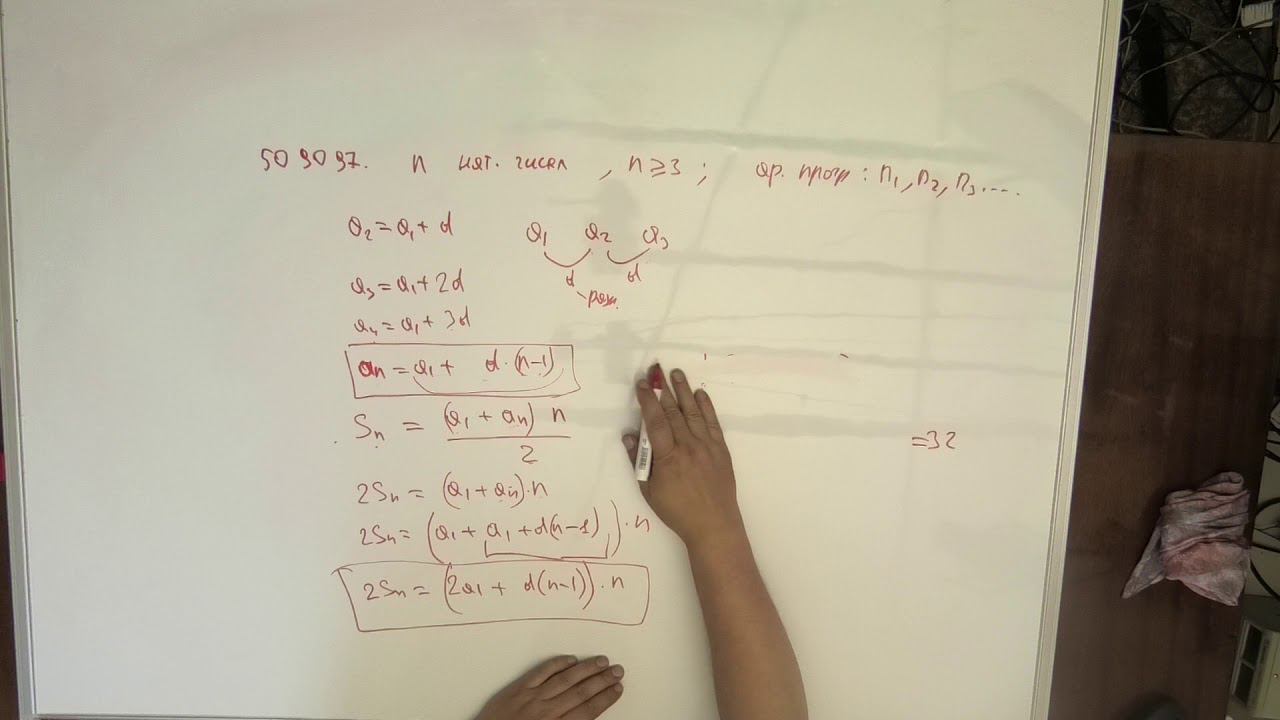 509097. n нат. чисел , n ≥ 3 ; ар. прогр : n₁, n₂, n₃ ....
a₂ = a₁ + d
a₁ a₂ a₃
d d
разн.
a₃ = a₁ + 2d
a₄ = a₁ + 3d
aₙ = a₁ + d · (n-1)
Sₙ = (a₁ + aₙ) n / 2
= 32
2Sₙ = (a₁ + aₙ) · n
2Sₙ = (a₁ + a₁ + d(n-1)) · n
2Sₙ = (2a₁ + d(n-1)) · n